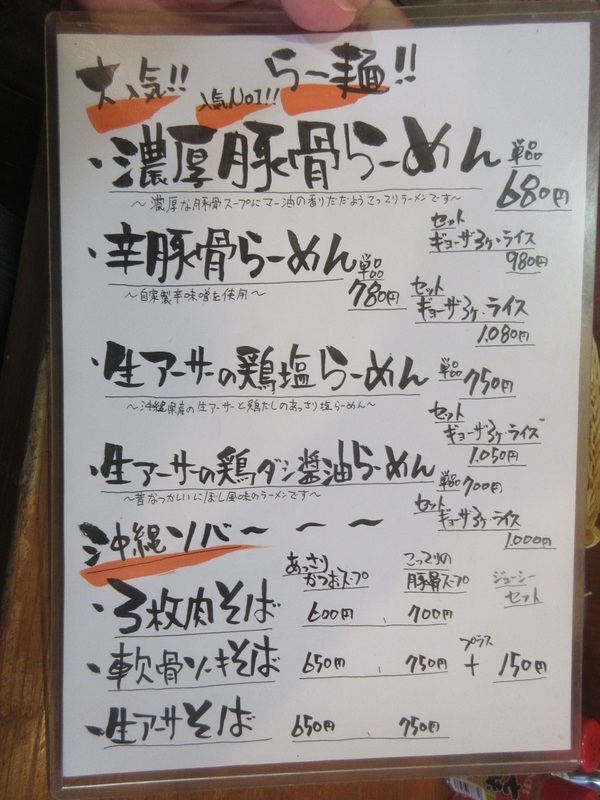 大人気!! らー麺!!
人気No1!!
・濃厚豚骨らーめん 単品 680円
～濃厚な豚骨スープにマー油の香りただようこってりラーメンです～
セット
ギョーザ3ヶ・ライス
980円
・辛豚骨らーめん 単品 780円
～自家製辛味噌を使用～
セット
ギョーザ3ヶ・ライス
1.080円
・生アーサの鶏塩らーめん 単品 750円
～沖縄県産の生アーサーと鶏だしのあっさり塩らーめん～
セット
ギョーザ3ヶ・ライス
1.050円
・生アーサの鶏ダシ醤油らーめん 単品 700円
～昔なつかしいにぼし風味のラーメンです～
セット
ギョーザ3ヶ・ライス
1.000円
沖縄ソバ～ ～ ～
あっさり かつおスープ
こってりの 豚骨スープ
ジューシー セット
・3枚肉そば 600円 、 700円
・軟骨ソーキそば 650円 、 750円 プラス + 150円
・生アーサそば 650円 、 750円